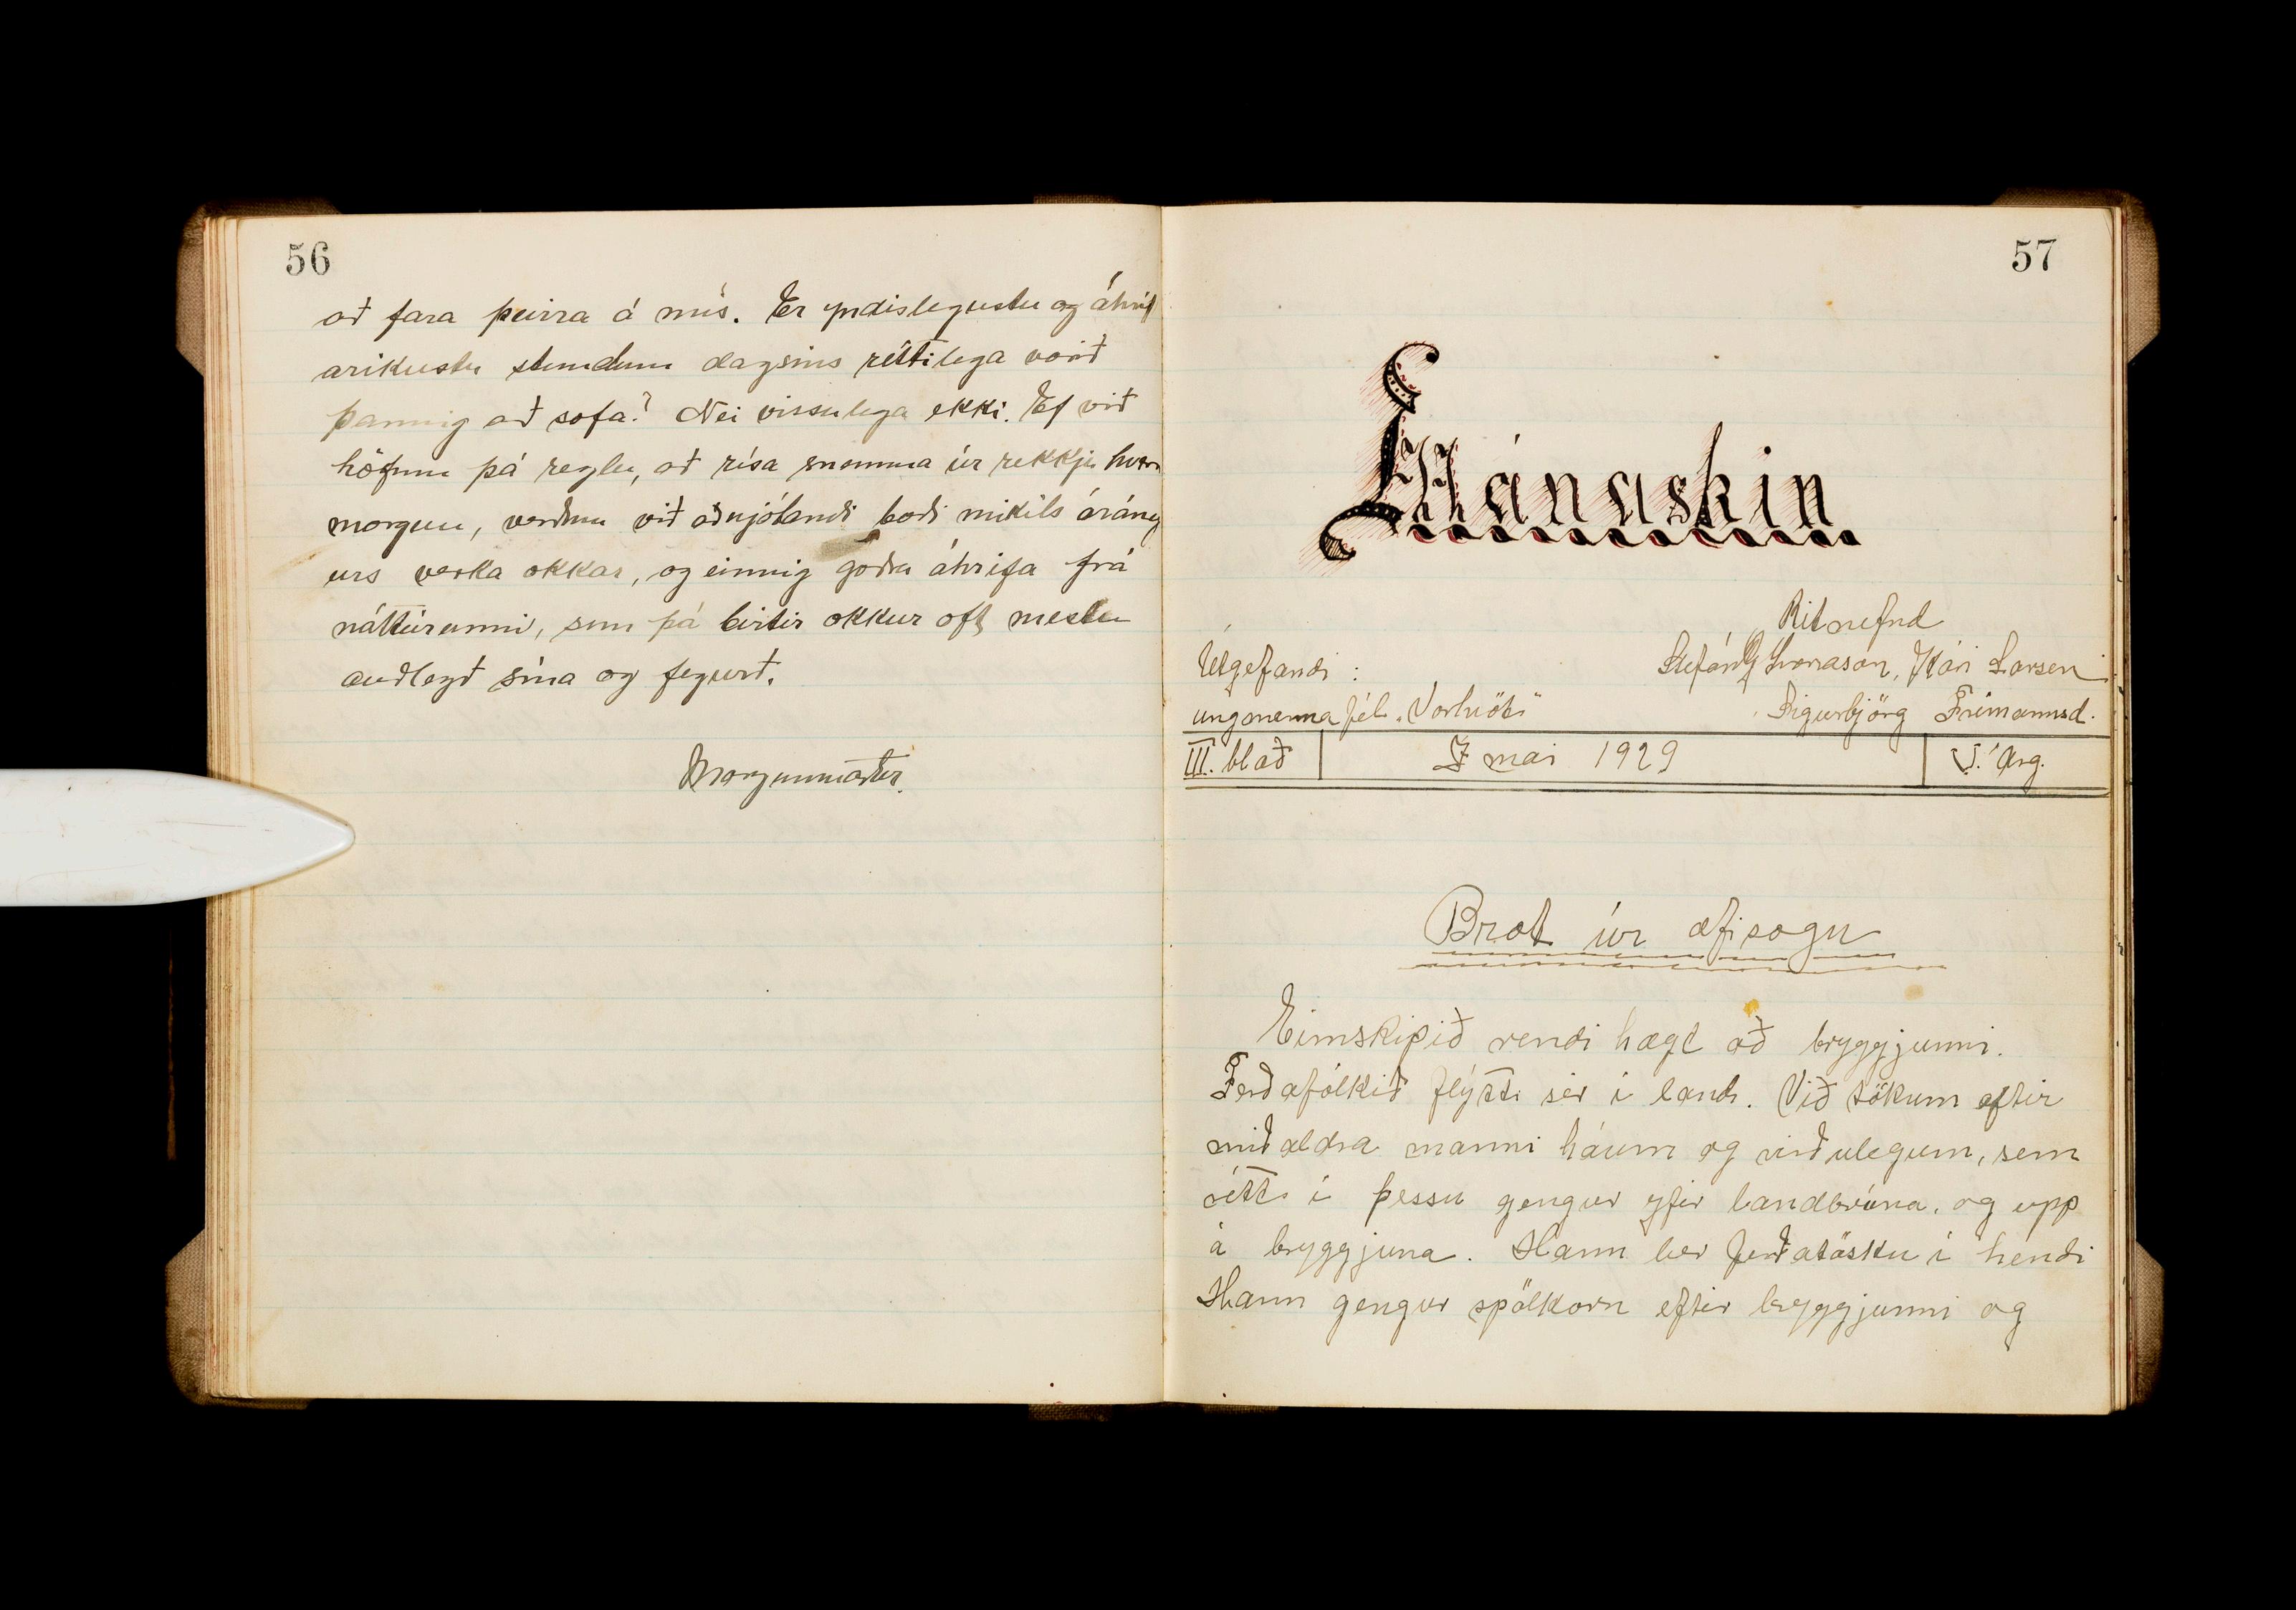 56
að fara þeirra á mis. Er yndislegustu og áhrif
aríkustu stundum dagsins réttilega varið
þannig að sofa? Nei vissulega ekki. Ef við
höfum þá reglu, að rísa snemma úr rekkju hvern
morgun, verðum við aðnjótandi boði mikils árang
urs verka okkar, og einnig góðra áhrifa frá
náttúrunni, sem þá birtir okkur oft mestu
auðlegð sína og fegurð.
Morgunmaður.
57
Mánaskin
Ritnefnd
Útgefandi :
Stefán G Svonason, Kári Larsen
ungmennafél. "Vorhvöt"
Sigurbjörg Frímannsd.
III. blað
7 mai 1929
V. Árg.
Brot úr æfisögu
Eimskipið rendi hægt að bryggjunni.
Ferðafólkið flýtti sér í land. Við tökum eftir
miðaldra manni háum og virðulegum, sem
rétt í þessu gengur yfir landbrúna, og upp
á bryggjuna. Hann ber ferðatösku í hendi
Hann gengur spölkorn eftir bryggjunni og